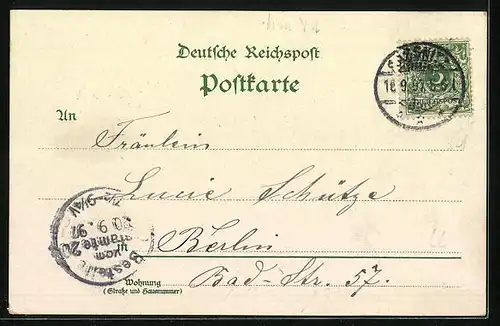 Deutsche Reichspost
Postkarte
SASSNITZ
18.9.97
An
Fräulein
Lucie Schütze
in Berlin
Bad-Str. 57.
Wohnung
(Straße und Hausnummer)
Bestellt
vom
Postamte 20
20.9.97